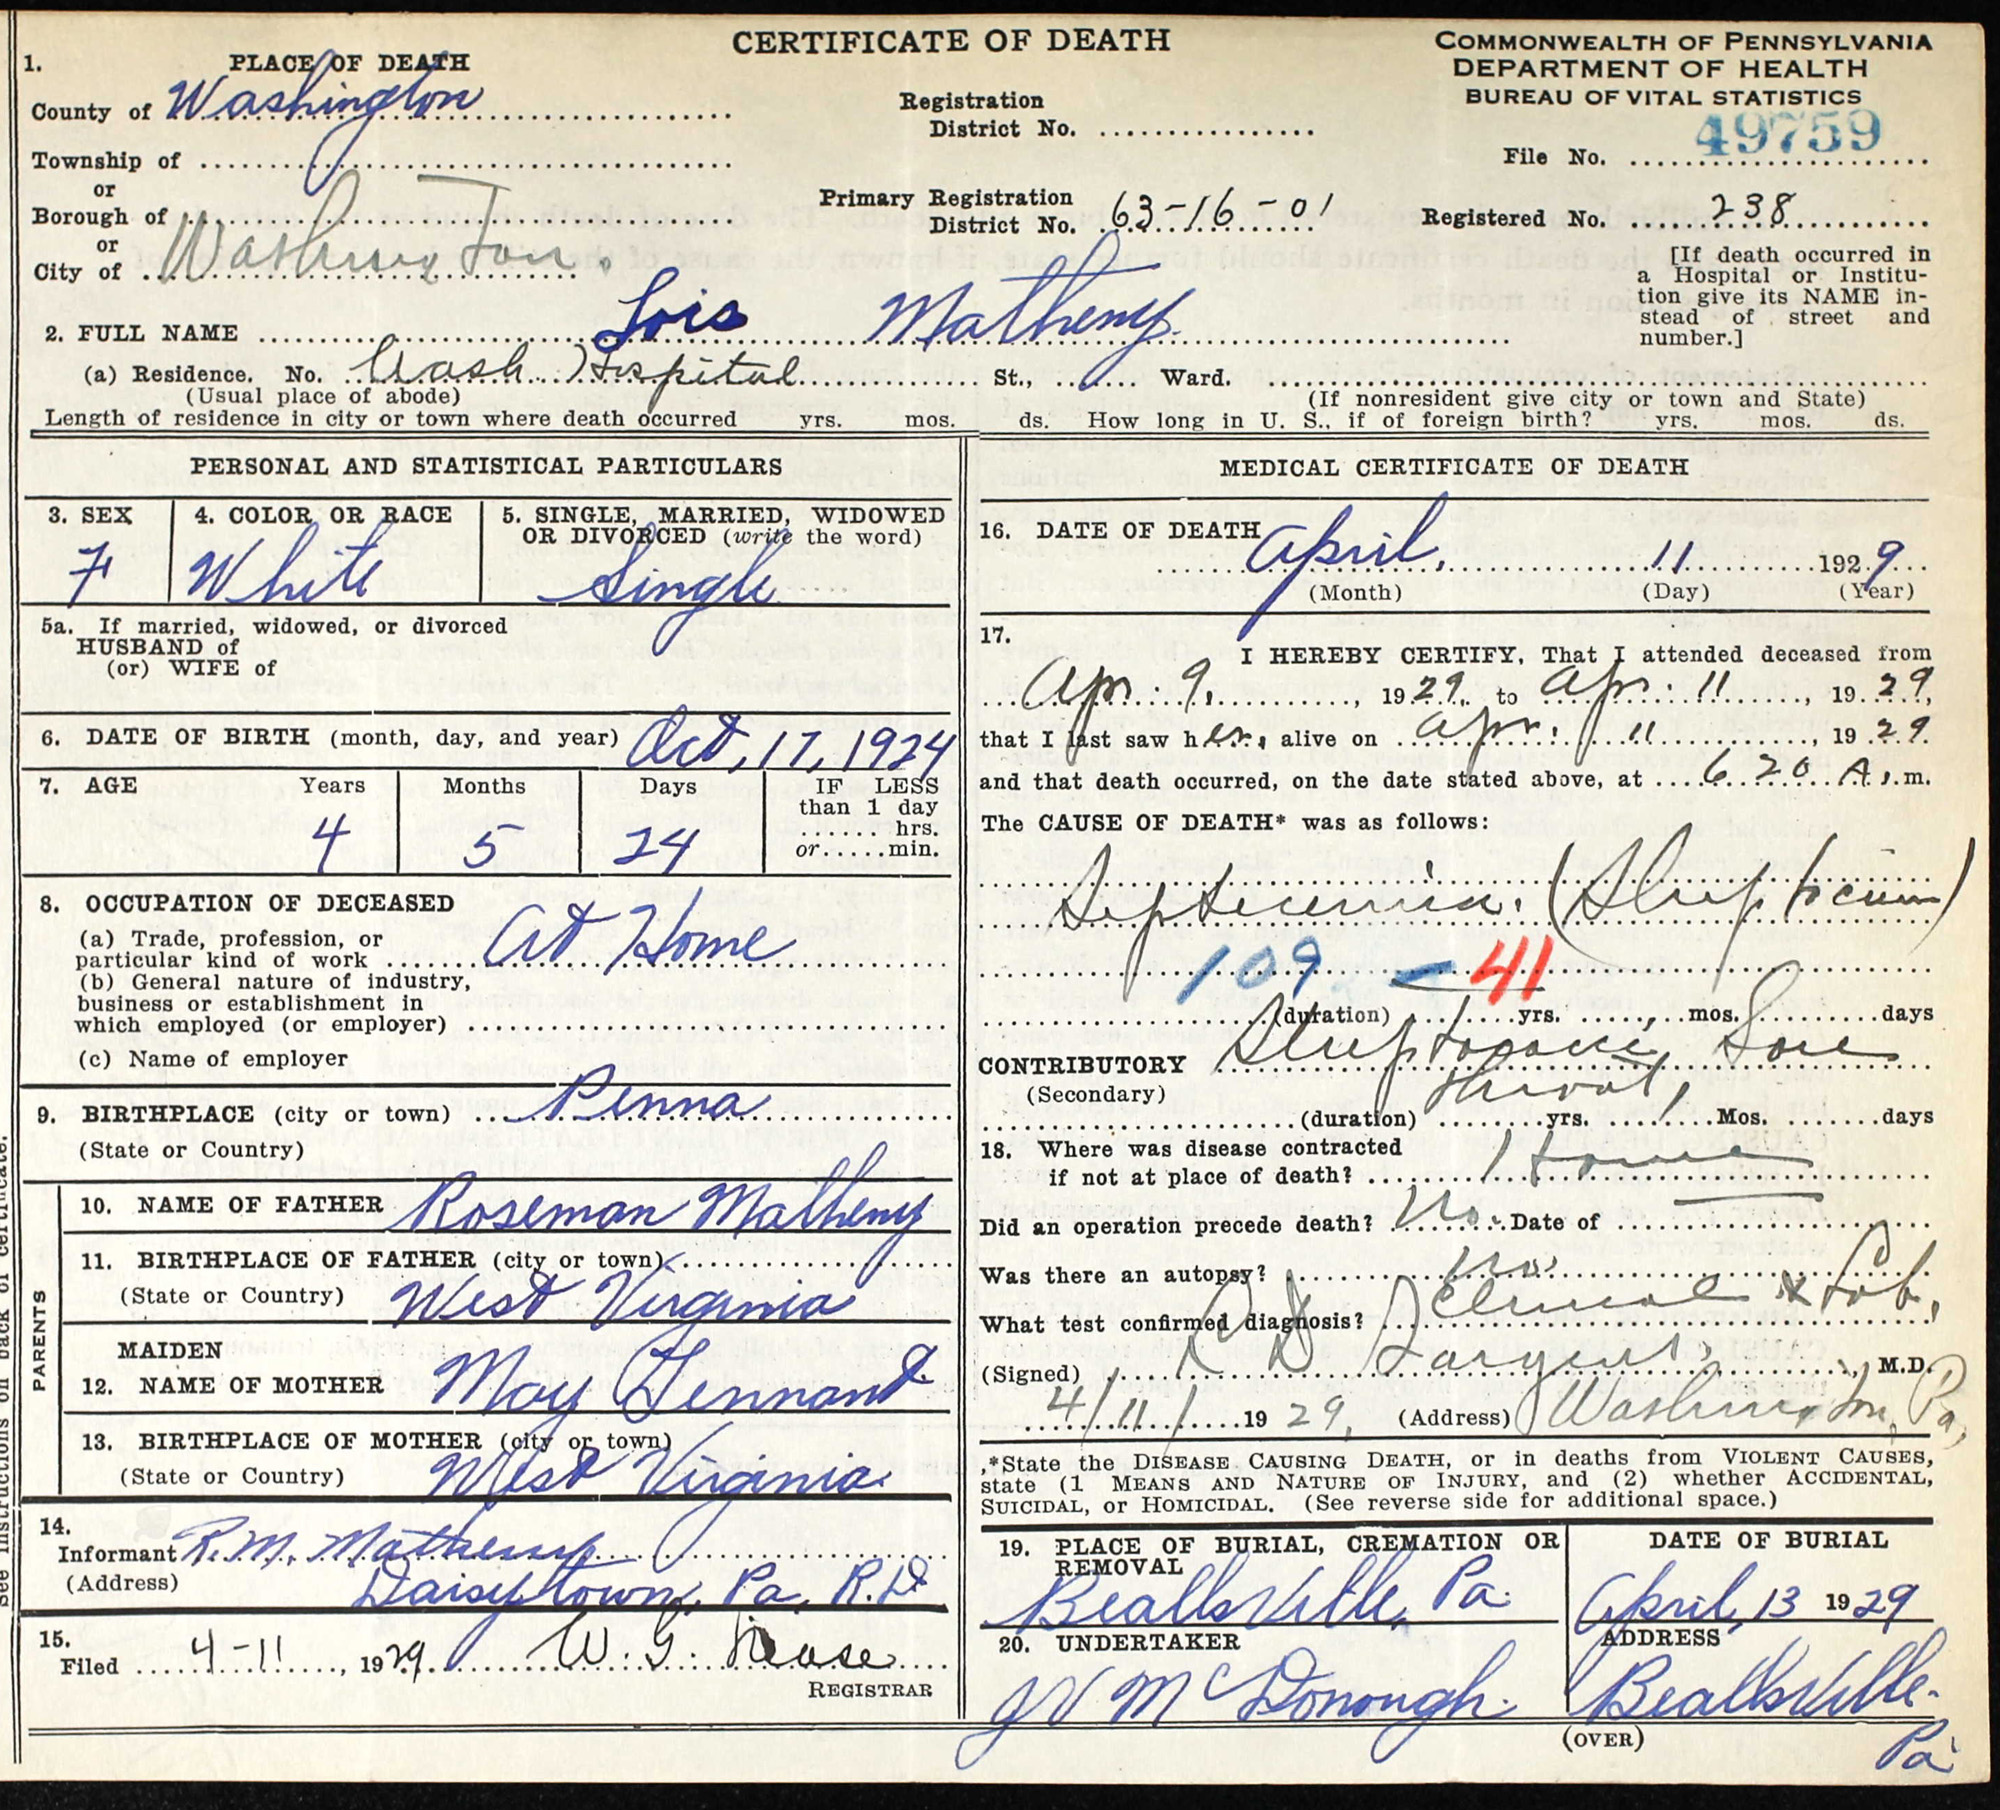 CERTIFICATE OF DEATH
COMMONWEALTH OF PENNSYLVANIA
DEPARTMENT OF HEALTH
BUREAU OF VITAL STATISTICS
1. PLACE OF DEATH
County of Washington
Township of
or
Borough of
or
City of Washington.
Registration
District No.
File No. 49759
Primary Registration
District No. 63-16-01
Registered No. 238
[If death occurred in
a Hospital or Institu-
tion give its NAME in-
stead of street and
number.]
2. FULL NAME Lois Matheny
(a) Residence. No. Wash Hospital St., Ward.
(Usual place of abode)
(If nonresident give city or town and State)
Length of residence in city or town where death occurred yrs. mos. ds. How long in U. S., if of foreign birth? yrs. mos. ds.
PERSONAL AND STATISTICAL PARTICULARS
3. SEX
F
4. COLOR OR RACE
White
5. SINGLE, MARRIED, WIDOWED
OR DIVORCED (write the word)
Single
5a. If married, widowed, or divorced
HUSBAND of
(or) WIFE of
6. DATE OF BIRTH (month, day, and year) Oct, 17, 1924
7. AGE Years Months Days IF LESS
than 1 day
hrs.
or ..... min.
4 5 24
8. OCCUPATION OF DECEASED
(a) Trade, profession, or
particular kind of work At Home
(b) General nature of industry,
business or establishment in
which employed (or employer)
(c) Name of employer
9. BIRTHPLACE (city or town) Penna
(State or Country)
PARENTS
10. NAME OF FATHER Roseman Matheny
11. BIRTHPLACE OF FATHER (city or town)
(State or Country) West Virginia
MAIDEN
12. NAME OF MOTHER May Tennant
13. BIRTHPLACE OF MOTHER (city or town)
(State or Country) West Virginia
14.
Informant R.M. Matheny
(Address) Daisytown, Pa. R.D
15.
Filed 4-11, 1929 W. G.
REGISTRAR
MEDICAL CERTIFICATE OF DEATH
16. DATE OF DEATH
April, 11 1929
(Month) (Day) (Year)
17.
I HEREBY CERTIFY, That I attended deceased from
Apr. 9, 1929, to Apr 11, 1929,
that I last saw her, alive on Apr. 11, 1929
and that death occurred, on the date stated above, at 6.20 A.m.
The CAUSE OF DEATH* was as follows:
Septicemia.
109 - 41
(duration) yrs. mos. days
CONTRIBUTORY Streptococcic Sore
(Secondary) throat,
(duration) yrs. Mos. days
18. Where was disease contracted
if not at place of death? Home
Did an operation precede death? No. Date of
Was there an autopsy? No
What test confirmed diagnosis? Clinical & Lab.
(Signed) Sargent, M.D.
4/11/1929, (Address) Washington, Pa,
*State the DISEASE CAUSING DEATH, or in deaths from VIOLENT CAUSES,
state (1 MEANS AND NATURE OF INJURY, and (2) whether ACCIDENTAL,
SUICIDAL, or HOMICIDAL. (See reverse side for additional space.)
19. PLACE OF BURIAL, CREMATION OR
REMOVAL
Beallsville, Pa.
DATE OF BURIAL
April, 13 1929
20. UNDERTAKER
McDonough.
ADDRESS
Beallsville.
Pa
(OVER)
See instructions on back of certificate.